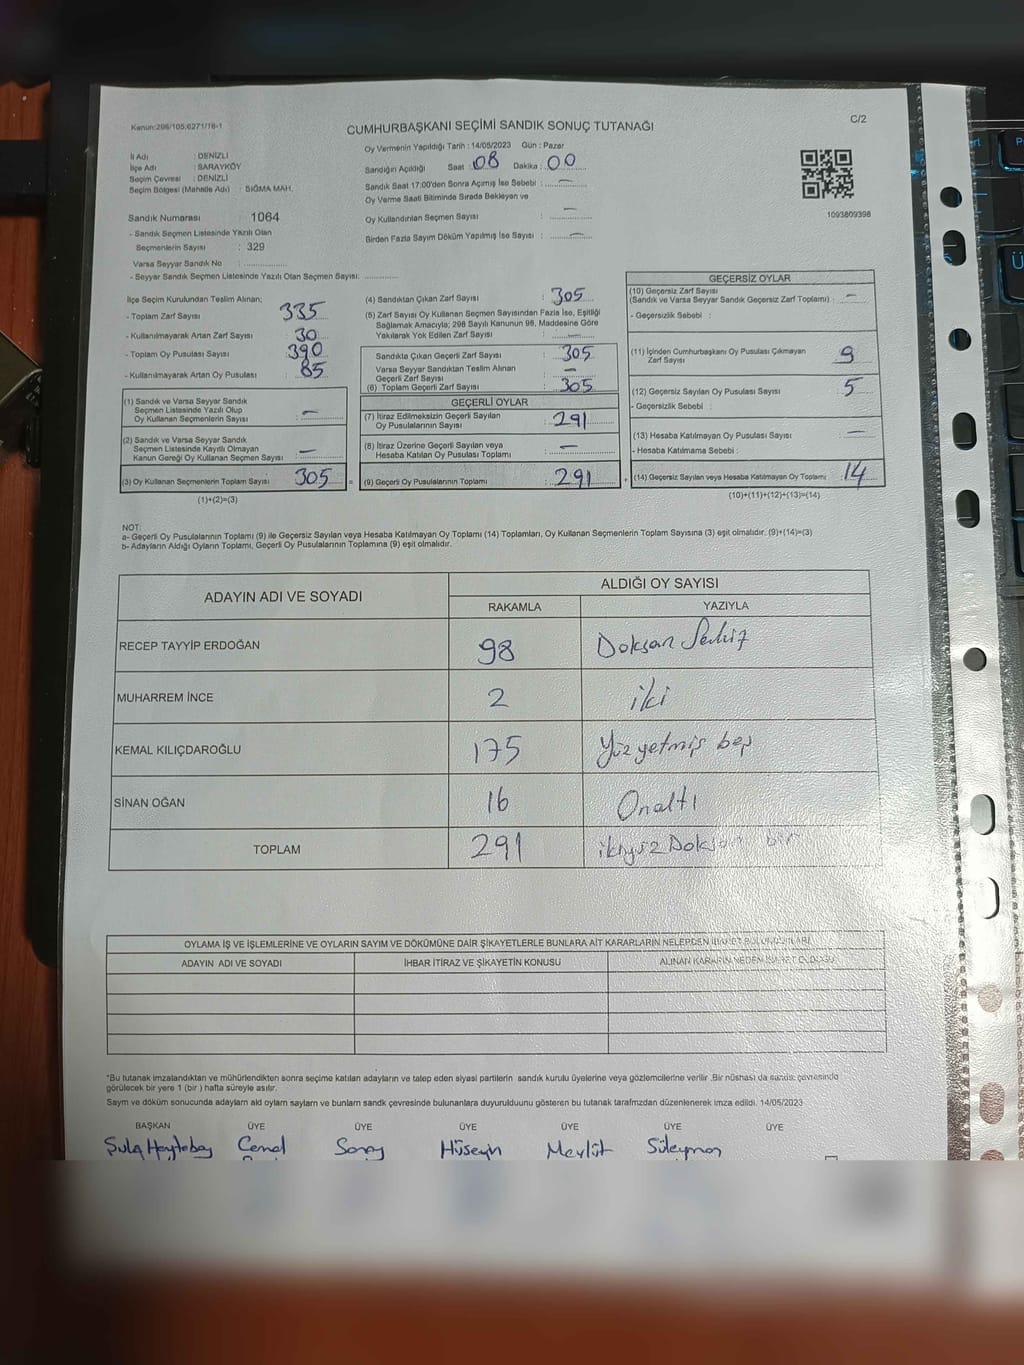 Kanun:298/105;6271/16-1
CUMHURBAŞKANI SEÇİMİ SANDIK SONUÇ TUTANAĞI
C/2
İl Adı : DENİZLİ
İlçe Adı : SARAYKÖY
Seçim Çevresi : DENİZLİ
Seçim Bölgesi (Mahalle Adı) : SIĞMA MAH.
Oy Vermenin Yapıldığı Tarih : 14/05/2023 Gün : Pazar
Sandığın Açıldığı Saat : 08 Dakika : 00
Sandık Saat 17:00'den Sonra Açılmış İse Sebebi : —
Oy Verme Saati Bitiminde Sırada Bekleyen ve
Oy Kullandırılan Seçmen Sayısı : —
Birden Fazla Sayım Döküm Yapılmış İse Sayısı : —
1093809398
Sandık Numarası 1064
- Sandık Seçmen Listesinde Yazılı Olan
Seçmenlerin Sayısı : 329
Varsa Seyyar Sandık No :
- Seyyar Sandık Seçmen Listesinde Yazılı Olan Seçmen Sayısı:
İlçe Seçim Kurulundan Teslim Alınan;
- Toplam Zarf Sayısı 335
- Kullanılmayarak Artan Zarf Sayısı 30
- Toplam Oy Pusulası Sayısı 390
- Kullanılmayarak Artan Oy Pusulası 85
(1) Sandık ve Varsa Seyyar Sandık
Seçmen Listesinde Yazılı Olup
Oy Kullanan Seçmenlerin Sayısı : —
(2) Sandık ve Varsa Seyyar Sandık
Seçmen Listesinde Kayıtlı Olmayan
Kanun Gereği Oy Kullanan Seçmen Sayısı : —
(3) Oy Kullanan Seçmenlerin Toplam Sayısı 305
(1)+(2)=(3)
(4) Sandıktan Çıkan Zarf Sayısı : 305
(5) Zarf Sayısı Oy Kullanan Seçmen Sayısından Fazla İse, Eşitliği
Sağlamak Amacıyla; 298 Sayılı Kanunun 98. Maddesine Göre
Yakılarak Yok Edilen Zarf Sayısı : —
Sandıkta Çıkan Geçerli Zarf Sayısı : 305
Varsa Seyyar Sandıktan Teslim Alınan
Geçerli Zarf Sayısı : —
(6) Toplam Geçerli Zarf Sayısı : 305
GEÇERLİ OYLAR
(7) İtiraz Edilmeksizin Geçerli Sayılan
Oy Pusulalarının Sayısı : 291
(8) İtiraz Üzerine Geçerli Sayılan veya
Hesaba Katılan Oy Pusulası Toplamı : —
(9) Geçerli Oy Pusulalarının Toplamı : 291
GEÇERSİZ OYLAR
(10) Geçersiz Zarf Sayısı
(Sandık ve Varsa Seyyar Sandık Geçersiz Zarf Toplamı) : —
- Geçersizlik Sebebi :
(11) İçinden Cumhurbaşkanı Oy Pusulası Çıkmayan
Zarf Sayısı : 9
(12) Geçersiz Sayılan Oy Pusulası Sayısı : 5
- Geçersizlik Sebebi :
(13) Hesaba Katılmayan Oy Pusulası Sayısı : —
- Hesaba Katılmama Sebebi :
(14) Geçersiz Sayılan veya Hesaba Katılmayan Oy Toplamı : 14
(10)+(11)+(12)+(13)=(14)
NOT:
a- Geçerli Oy Pusulalarının Toplamı (9) ile Geçersiz Sayılan veya Hesaba Katılmayan Oy Toplamı (14) Toplamları, Oy Kullanan Seçmenlerin Toplam Sayısına (3) eşit olmalıdır. (9)+(14)=(3)
b- Adayların Aldığı Oyların Toplamı, Geçerli Oy Pusulalarının Toplamına (9) eşit olmalıdır.
ADAYIN ADI VE SOYADI
ALDIĞI OY SAYISI
RAKAMLA YAZIYLA
RECEP TAYYİP ERDOĞAN 98 Doksan Sekiz
MUHARREM İNCE 2 iki
KEMAL KILIÇDAROĞLU 175 Yüz yetmiş beş
SİNAN OĞAN 16 Onaltı
TOPLAM 291 ikiyüz Doksan bir
OYLAMA İŞ VE İŞLEMLERİNE VE OYLARIN SAYIM VE DÖKÜMÜNE DAİR ŞİKAYETLERLE BUNLARA AİT KARARLARIN NELERDEN İBARET BULUNDUKLARI
ADAYIN ADI VE SOYADI İHBAR İTİRAZ VE ŞİKAYETİN KONUSU ALINAN KARARIN NEDEN İBARET OLDUĞU
*Bu tutanak imzalandıktan ve mühürlendikten sonra seçime katılan adayların ve talep eden siyasi partilerin sandık kurulu üyelerine veya gözlemcilerine verilir. Bir nüshası da sandık çevresinde
görülecek bir yere 1 (bir ) hafta süreyle asılır.
Sayım ve döküm sonucunda adayların ald oyların sayların ve bunların sandk çevresinde bulunanlara duyurulduunu gösteren bu tutanak tarafmzdan düzenlenerek imza edildi. 14/05/2023
BAŞKAN ÜYE ÜYE ÜYE ÜYE ÜYE ÜYE
Cemal Soray Hüseyin Mevlüt Süleyman